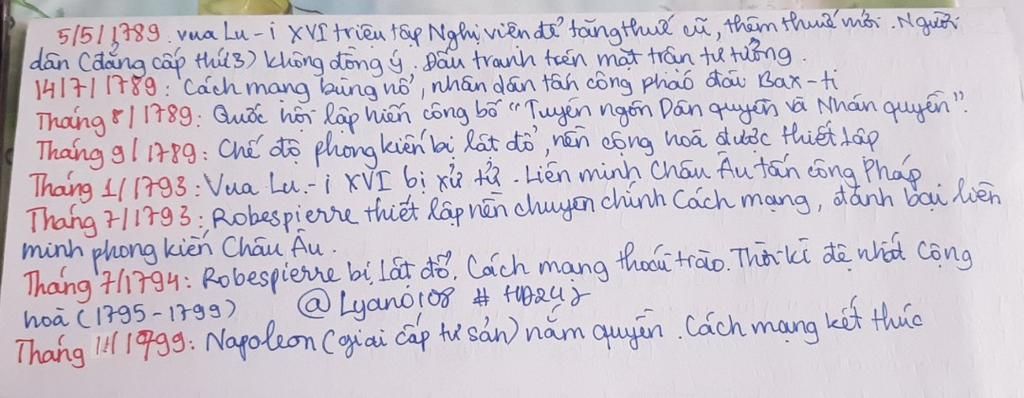 5/5/1789. vua Lu-i XVI triệu tập Nghị viện để tăng thuế cũ, thêm thuế mới. Người
dân (đẳng cấp thứ 3) không đồng ý. Đấu tranh trên mặt trận tư tưởng.
14/7/1789: Cách mạng bùng nổ, nhân dân tấn công pháo đài Bax-ti
Tháng 8/1789: Quốc hội lập hiến công bố "Tuyên ngôn Dân quyền và Nhân quyền".
Tháng 9/1789: Chế độ phong kiến bị lật đổ, nền cộng hoà được thiết lập
Tháng 1/1793: Vua Lu-i XVI bị xử tử. Liên minh Châu Âu tấn công Pháp
Tháng 7/1793: Robespierre thiết lập nền chuyên chính Cách mạng, đánh bại liên
minh phong kiến Châu Âu.
Tháng 7/1794: Robespierre bị lật đổ. Cách mạng thoái trào. Thời kì đệ nhất Cộng
hoà (1795-1799) @Lyano108
Tháng 11/1799: Napoleon (giai cấp tư sản) nắm quyền. Cách mạng kết thúc